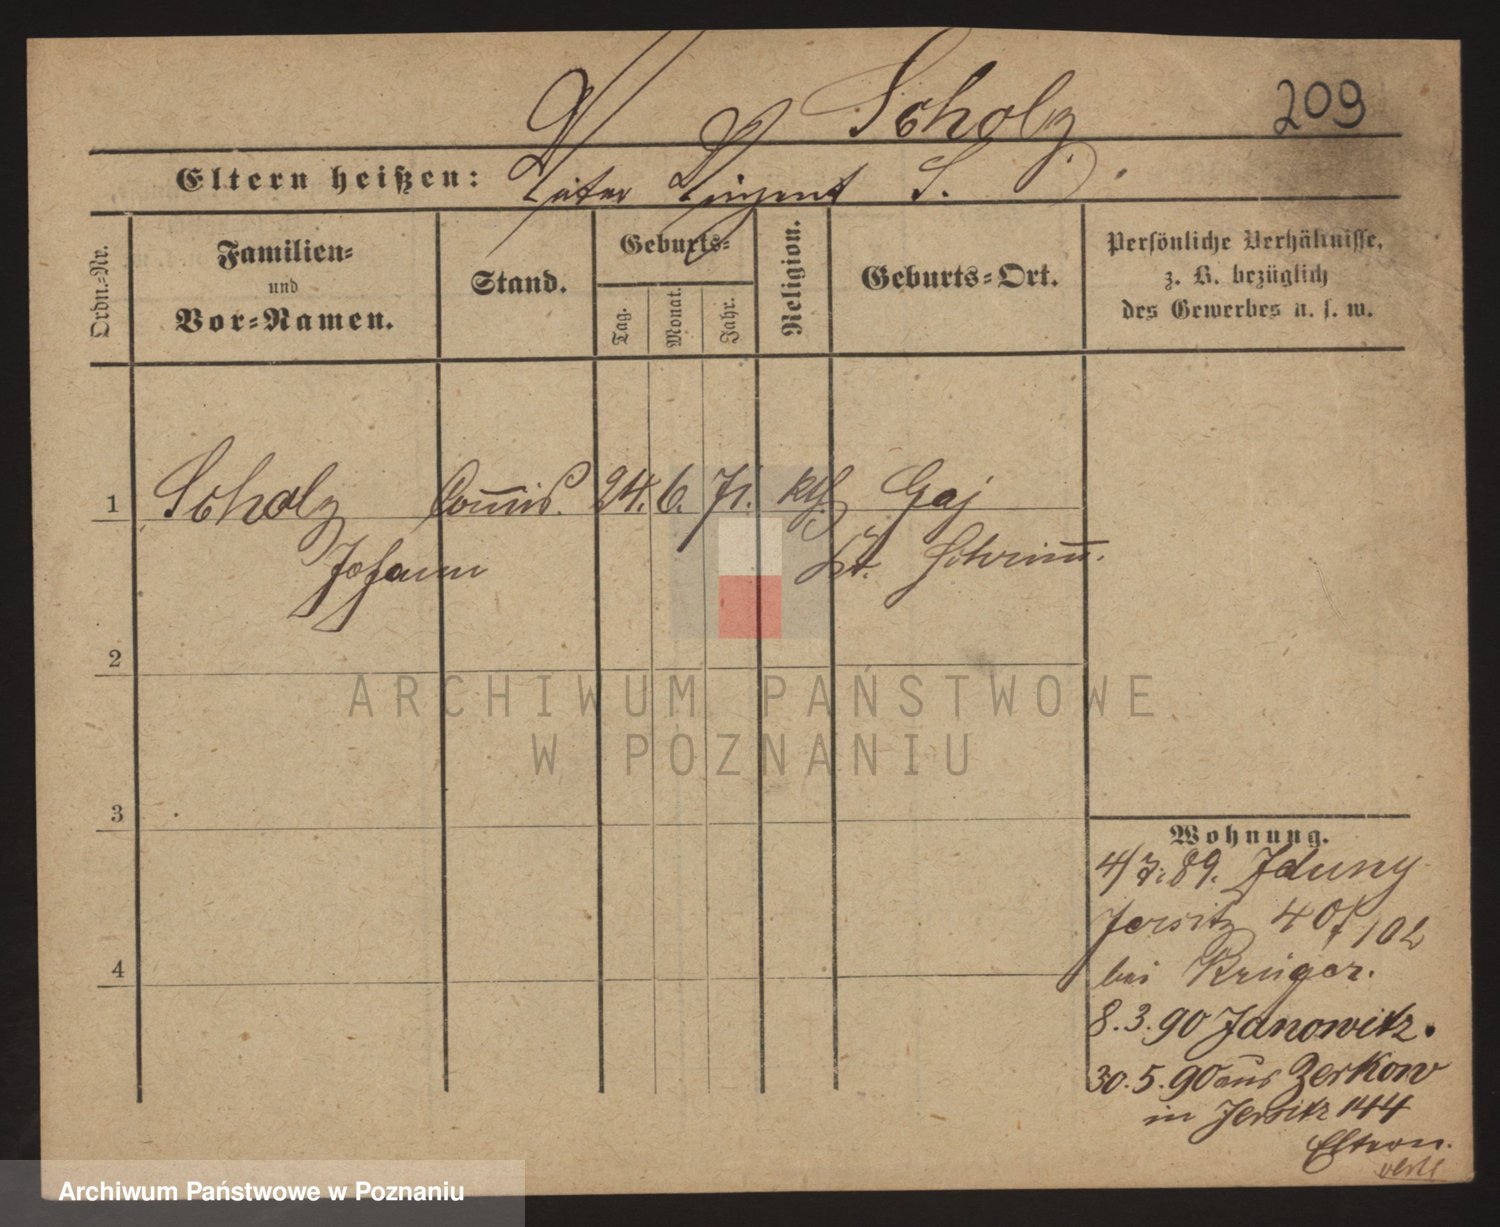 Scholz.
209
Eltern heißen: Vater Vinzent S.
Ordn.-Nr.
Familien-
und
Vor-Namen.
Stand.
Geburts-
Tag.
Monat.
Jahr.
Religion.
Geburts-Ort.
Persönliche Verhältnisse,
z. B. bezüglich
des Gewerbes u. s. w.
1 Scholz Commis. 24. 6. 71. kth. Gaj
Johann Kr. Schrimm.
2
3
4
Wohnung.
4/7. 89. Zduny
Jersitz 40/102
bei Krüger.
8.3.90 Janowitz.
30.5.90 aus Zerkow
in Jersitz 144
Eltern.
ARCHIWUM PAŃSTWOWE
W POZNANIU
Archiwum Państwowe w Poznaniu